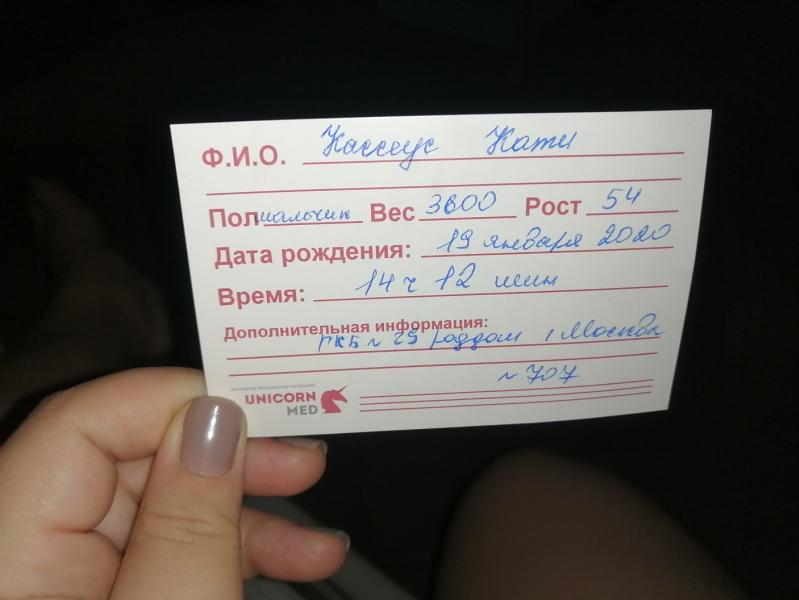 Ф.И.О. Кассеус Кати
Пол мальчик Вес 3600 Рост 54
Дата рождения: 19 января 2020
Время: 14 ч 12 мин
Дополнительная информация:
ГКБ № 29 роддом г Москва
№ 707
UNICORN
MED